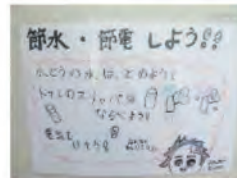 節水・節電 しよう!!
水どうの水は、とめよう!
トイレのスリッパは
ならべよう!
電気も
けそう!